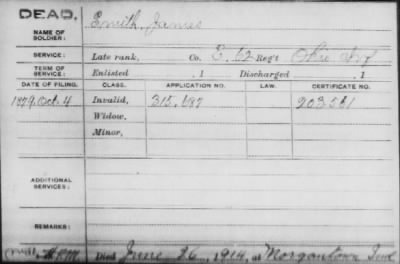 DEAD.
NAME OF SOLDIER: Smith, James
SERVICE: Late rank, Co. E, 62 Reg't Ohio Inf
TERM OF SERVICE: Enlisted , 1 Discharged , 1
DATE OF FILING. CLASS. APPLICATION NO. LAW. CERTIFICATE NO.
1879, Oct. 4 Invalid, 315,187 203581
Widow,
Minor,
ADDITIONAL SERVICES:
REMARKS:
Died June 26, 1914, at Morgantown